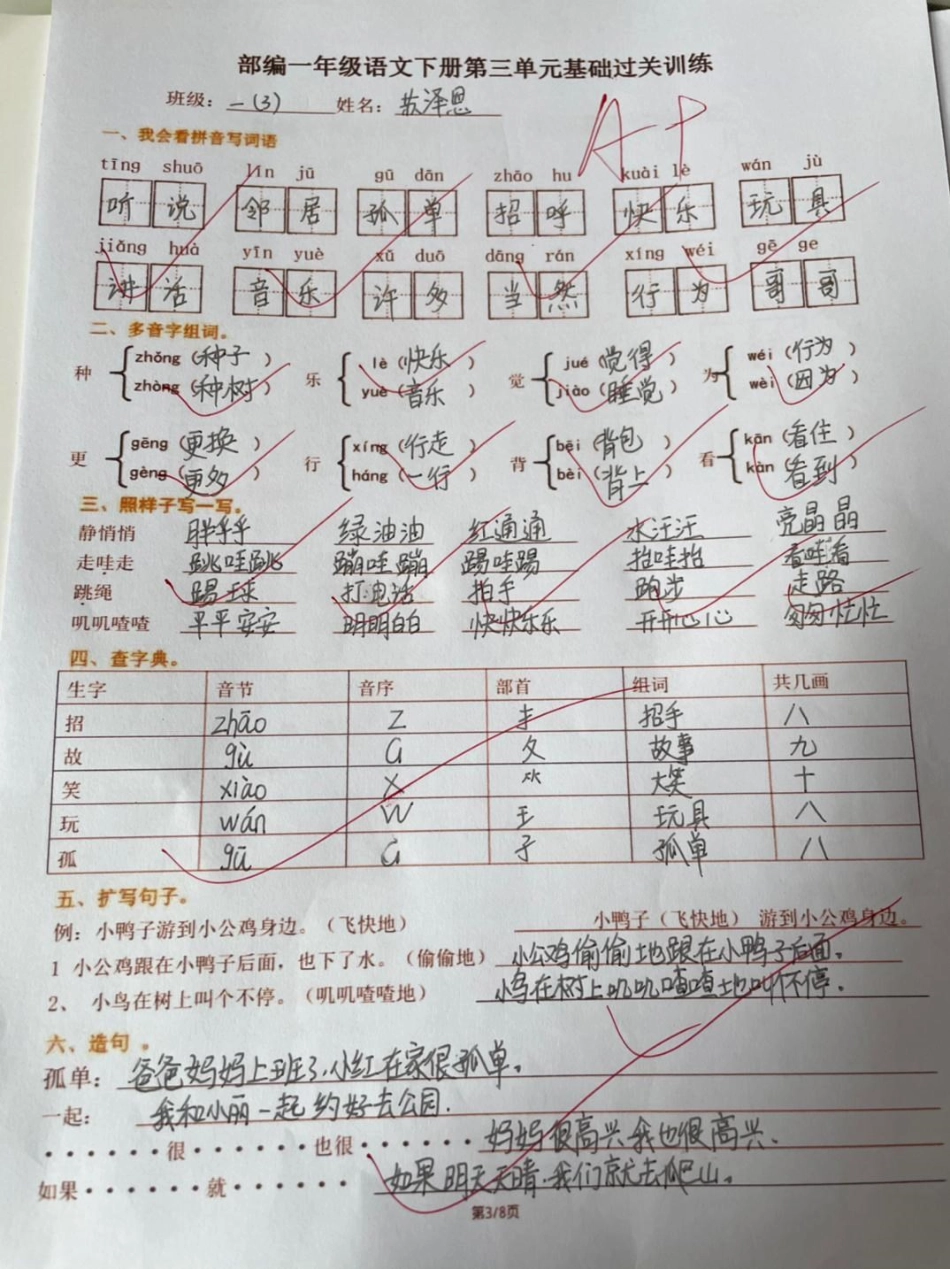 部编一年级语文下册第三单元基础过关训练
班级：一(3) 姓名：苏泽恩
A+
一、我会看拼音写词语
tīng shuō lín jū gū dān zhāo hu kuài lè wán jù
听说 邻居 孤单 招呼 快乐 玩具
jiǎng huà yīn yuè xǔ duō dāng rán xíng wéi gē ge
讲话 音乐 许多 当然 行为 哥哥
二、多音字组词。
种 zhǒng (种子) zhòng (种树) 乐 lè (快乐) yuè (音乐) 觉 jué (觉得) jiào (睡觉) 为 wéi (行为) wèi (因为)
更 gēng (更换) gèng (更多) 行 xíng (行走) háng (一行) 背 bēi (背包) bèi (背上) 看 kān (看住) kàn (看到)
三、照样子写一写。
静悄悄 胖乎乎 绿油油 红通通 水汪汪 亮晶晶
走哇走 跳哇跳 蹦哇蹦 踢哇踢 抬哇抬 看哇看
跳绳 踢球 打电话 拍手 跑步 走路
叽叽喳喳 平平安安 明明白白 快快乐乐 开开心心 匆匆忙忙
四、查字典。
生字 音节 音序 部首 组词 共几画
招 zhāo Z 扌 招手 八
故 gù G 攵 故事 九
笑 xiào X ⺮ 大笑 十
玩 wán W 王 玩具 八
孤 gū G 子 孤单 八
五、扩写句子。
例：小鸭子游到小公鸡身边。（飞快地） 小鸭子（飞快地） 游到小公鸡身边。
1 小公鸡跟在小鸭子后面，也下了水。（偷偷地） 小公鸡偷偷地跟在小鸭子后面。
2、 小鸟在树上叫个不停。（叽叽喳喳地） 小鸟在树上叽叽喳喳地叫个不停。
六、造句 。
孤单： 爸爸妈妈上班了，小红在家很孤单。
一起： 我和小丽一起约好去公园.
······很······也很······ 妈妈很高兴 我也很高兴.
如果······就······ 如果明天天晴，我们就去爬山。
第3/8页